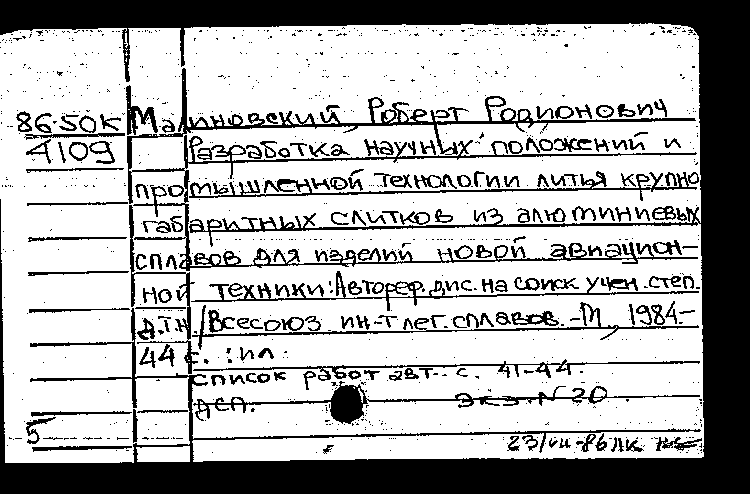 86-50К Малиновский, Роберт Родионович
4109 Разработка научных положений и
промышленной технологии литья крупно
габаритных слитков из алюминиевых
сплавов для изделий новой авиацион-
ной техники: Автореф. дис. на соиск учен. степ.
д.т.н /Всесоюз ин-т лег. сплавов. -М, 1984.-
44 с. : ил.
Список работ авт.. с. 41-44.
ДСП. Экз. N 20
5
23/VII-86 ЛК